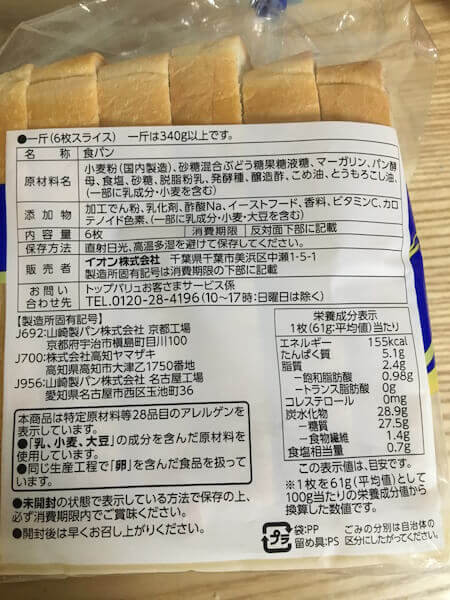 ●一斤(6枚スライス) 一斤は340g以上です。
名 称 食パン
原材料名 小麦粉(国内製造)、砂糖混合ぶどう糖果糖液糖、マーガリン、パン酵
母、食塩、砂糖、脱脂粉乳、発酵種、醸造酢、こめ油、とうもろこし油、
(一部に乳成分・小麦を含む)
添 加 物 加工でん粉、乳化剤、酢酸Na、イーストフード、香料、ビタミンC、カロ
テノイド色素、(一部に乳成分・小麦・大豆を含む)
内 容 量 6枚 消費期限 反対面下部に記載
保存方法 直射日光、高温多湿を避けて保存してください。
販 売 者 イオン株式会社 千葉県千葉市美浜区中瀬1-5-1
製造所固有記号は消費期限の下部に記載
お 問 い
合わせ先
トップバリュお客さまサービス係
TEL.0120-28-4196(10~17時:日曜日は除く)
【製造所固有記号】
J692:山﨑製パン株式会社 京都工場
京都府宇治市槇島町目川100
J700:株式会社高知ヤマザキ
高知県高知市大津乙1750番地
J956:山﨑製パン株式会社 名古屋工場
愛知県名古屋市西区玉池町36
本商品は特定原材料等28品目のアレルゲンを
表示しています。
●「乳、小麦、大豆」の成分を含んだ原材料を
使用しています。
●同じ生産工程で「卵」を含んだ食品を扱って
います。
●未開封の状態で表示している方法で保存の上、
必ず消費期限内でご賞味ください。
●開封後は早くお召し上がりください。
栄養成分表示
1枚(61g:平均値)当たり
エネルギー 155kcal
たんぱく質 5.1g
脂質 2.4g
-飽和脂肪酸 0.98g
-トランス脂肪酸 0g
コレステロール 0mg
炭水化物 28.9g
-糖質 27.5g
-食物繊維 1.4g
食塩相当量 0.7g
この表示値は、目安です。
※1枚を61g(平均値)として
100g当たりの栄養成分値から
換算した数値です。
プラ
袋:PP
留め具:PS
ごみの分別は自治体の
区分にしたがってください。